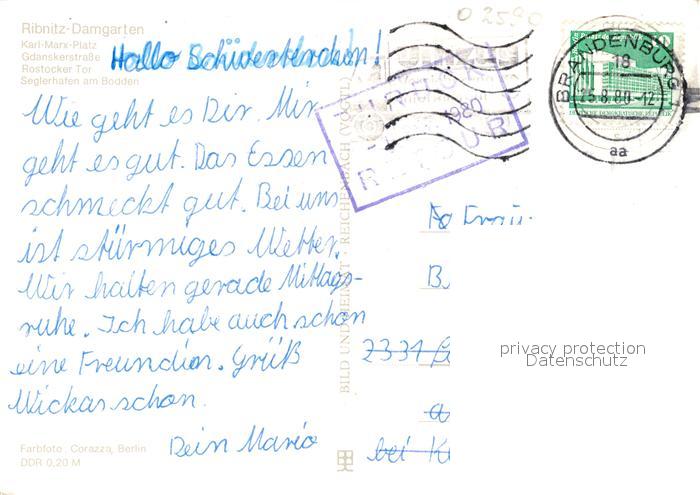 Ribnitz-Damgarten
Karl-Marx-Platz
Gdanskerstraße
Rostocker Tor
Seglerhafen am Bodden
Hallo Schwesterchen!
Wie geht es Dir. Mir
geht es gut. Das Essen
schmeckt gut. Bei uns
ist stürmiges Wetter.
Wir halten gerade Mittags-
ruhe. Ich habe auch schon
eine Freundin. Grüß
Wickas schon.
Dein Mario
Farbfoto: Corazza, Berlin
DDR 0,20 M
BILD UND HEIMAT · REICHENBACH (VOGTL)
0 2590
1980
RETOUR
BRANDENBURG
18
25.8.80-12
aa
DEUTSCHE DEMOKRATISCHE REPUBLIK
Fa
B.
2331
bei
privacy protection
Datenschutz